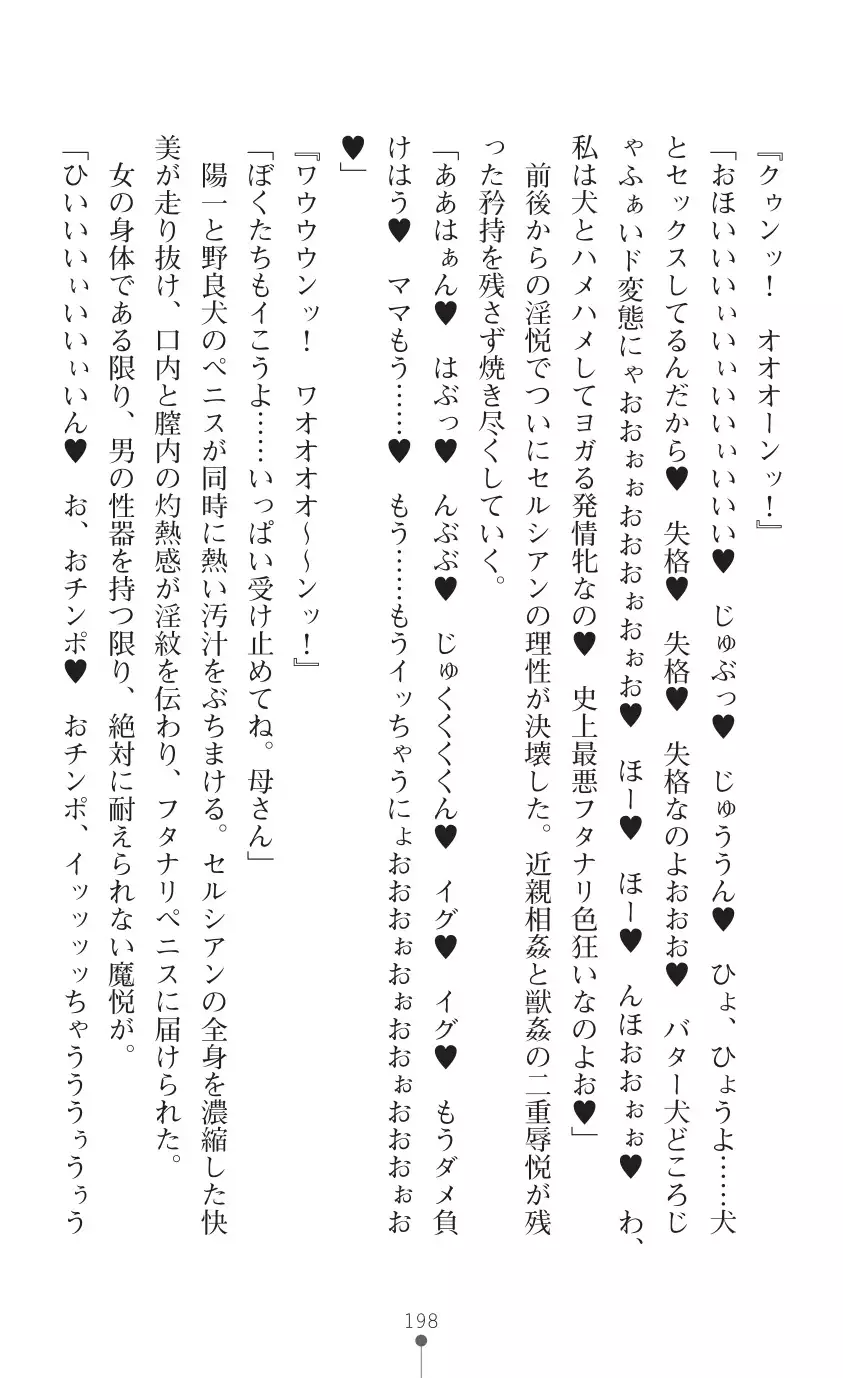 『クゥンッ！　オオオーンッ！』
「おほいいいぃいぃいいいぃいいい♥　じゅぶっ♥　じゅううん♥　ひょ、ひょうよ……犬
とセックスしてるんだから♥　失格♥　失格♥　失格なのよおおお♥　バター犬どころじ
ゃふぁいド変態にゃおおぉぉおおおぉおぉお♥　ほー♥　ほー♥　んほおおぉぉ♥　わ、
私は犬とハメハメしてヨガる発情牝なの♥　史上最悪フタナリ色狂いなのよお♥」
　前後からの淫悦でついにセルシアンの理性が決壊した。近親相姦と獣姦の二重辱悦が残
った矜持を残さず焼き尽くしていく。
「ああはぁん♥　はぶっ♥　んぶぶ♥　じゅくくくくん♥　イグ♥　イグ♥　もうダメ負
けはう♥　ママもう……♥　もう……もうイッちゃうにょおおおぉおぉおおぉおおおぉお
♥」
『ワウウウンッ！　ワオオオオ～～ンッ！』
「ぼくたちもイこうよ……いっぱい受け止めてね。母さん」
　陽一と野良犬のペニスが同時に熱い汚汁をぶちまける。セルシアンの全身を濃縮した快
美が走り抜け、口内と膣内の灼熱感が淫紋を伝わり、フタナリペニスに届けられた。
　女の身体である限り、男の性器を持つ限り、絶対に耐えられない魔悦が。
「ひいいいぃいいぃいん♥　お、おチンポ♥　おチンポ、イッッッッちゃうううぅうぅう
198